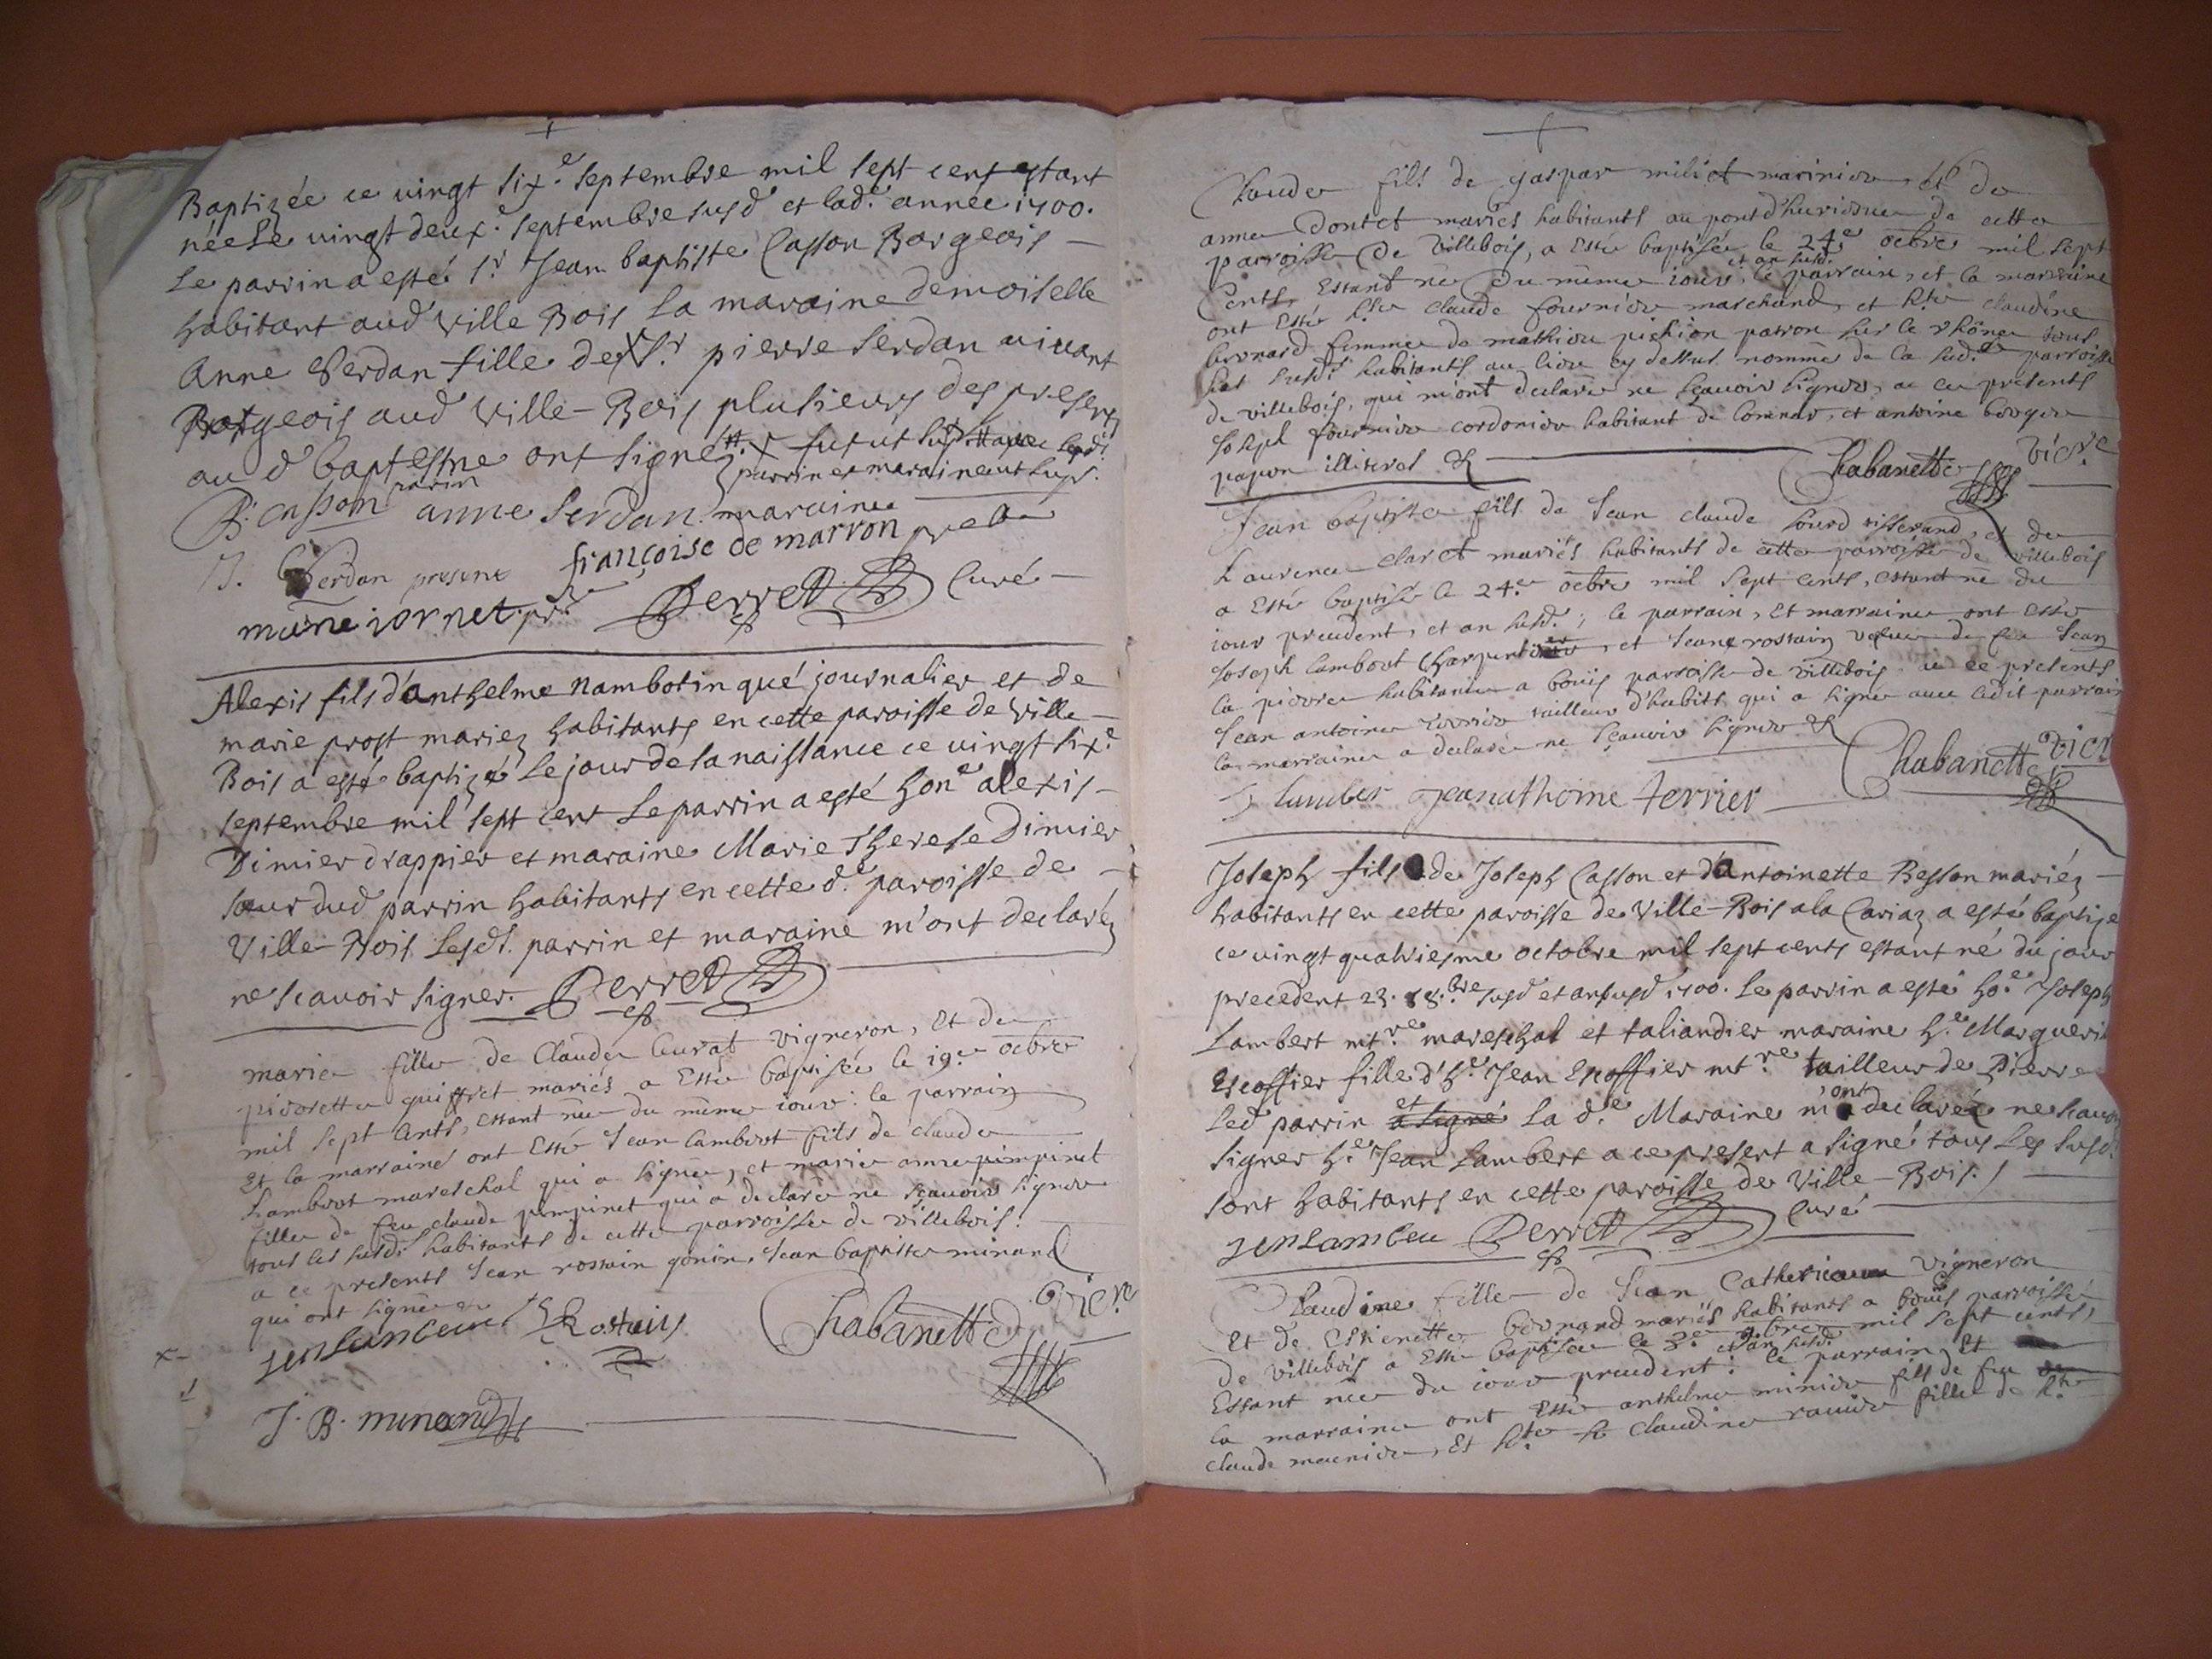 Baptizée ce vingt six.e Septembre mil sept cent estant
née le vingt deux.e septembre susd et lad.e année 1700.
Le parrin a esté s.r Jean baptiste Casson Borgeois
habitant aud ville Bois la maraine demoiselle
Anne Serdan fille de s.r pierre Serdan vivant
Borgeois aud ville-Bois plusieurs des presents
au d baptesme ont signez
parrin et maraine
B. Casson parin anne Serdan maraine
J. Serdan present françoise de marron
Perret Curé
Alexis fils d'anthelme nambotin qué journalier et de
marie prost mariez habitants en cette paroisse de ville
Bois a esté baptizé le jour de sa naissance ce vingt six.e
septembre mil sept cent Le parrin a esté hon.e alexis
Dimier drappier et maraine Marie Therese Dimier
soeur dud parrin habitants en cette d.e paroisse de
Ville-Bois Lesd. parrin et maraine m'ont declaréz
ne scavoir signer. Perret
marie fille de Claude Curat vigneron, et de
pierrette quiffret mariés a esté baptisée le 19.e octbre
mil sept cents, estant née du même iour: le parrain
et la marraine ont esté Jean lambert fils de claude
Lambert mareschal qui a signé, et marie anne pimpinet
fille de feu claude pimpinet qui a declaré ne sçavoir signer
tous les susd. habitants de cette parroisse de villebois.
a ce presents Jean rostain gonin, Jean baptiste minand
qui ont signé
jen lanbert Rostain Chabanette vic.re
J. B. minand
Claude fils de gaspar miliet marinier, et de
anne Dontet mariés habitants au pont d'hurieux de cette
parroisse de Villebois, a esté baptisé le 24.e octbre mil sept
cents, estant né du même iour, et an susd. le parrain, et la marraine
ont esté claude fournier marchand, et claudine
bernard femme de mathieu pichion patron sur le rhône tous
les susd. habitants au lieu cy dessus nommé de la sud. parroisse
de villebois, qui m'ont declaré ne sçavoir signer, a ce presents
Joseph fournier cordonier habitant de et antoine berger
papon illiterés
Chabanette vic.re
Jean baptiste fils de Jean claude sourd tisserand, et de
Laurence claret mariés habitants de cette parroisse de villebois
a esté baptisé le 24.e octbre mil sept cents, estant né du
iour precedent, et an susd.; le parrain, et marraine ont esté
Joseph lambert charpentier, et Jeane rostain vefve de feu Jean
la pierre habitants a bouis parroisse de villebois a ce presents
Jean antoine terrier tailleur d'habits qui a signé avec ledit parrain
la marraine a declaré ne sçavoir signer
J lamber jeanathoine terrier Chabanette vicr.
Joseph fils de Joseph Casson et d'antoinette Besson mariéz
habitants en cette paroisse de Ville-Bois a la Cariaz a esté baptizé
ce vingt quatriesme octobre mil sept cents estant né du jour
precedent 23. 8.bre susd et an susd 1700. Le parrin a esté ho.e Joseph
Lambert mt.re mareschal et taliandier maraine h.e Marguerite
Escoffier fille d'h.e Jean Escoffier mt.re tailleur de Pierre
Led parrin et la d.e Maraine m'ont declaréz ne scavoir
signer h.e Jean Lambert a ce present a signé tous les susd.
sont habitants en cette paroisse de Ville-Bois.
jen lambeu Perret Curé
Claudine fille de Jean Vigneron
et de Estienette bernand mariés habitants a bouis parroisse
de villebois a esté baptisée le 3.e 9bre mil sept cents, et an susd.
Estant née du iour precedent: le parrain, et
la marraine ont esté anthelme minier fils de feu
claude et claudine ravier fille de